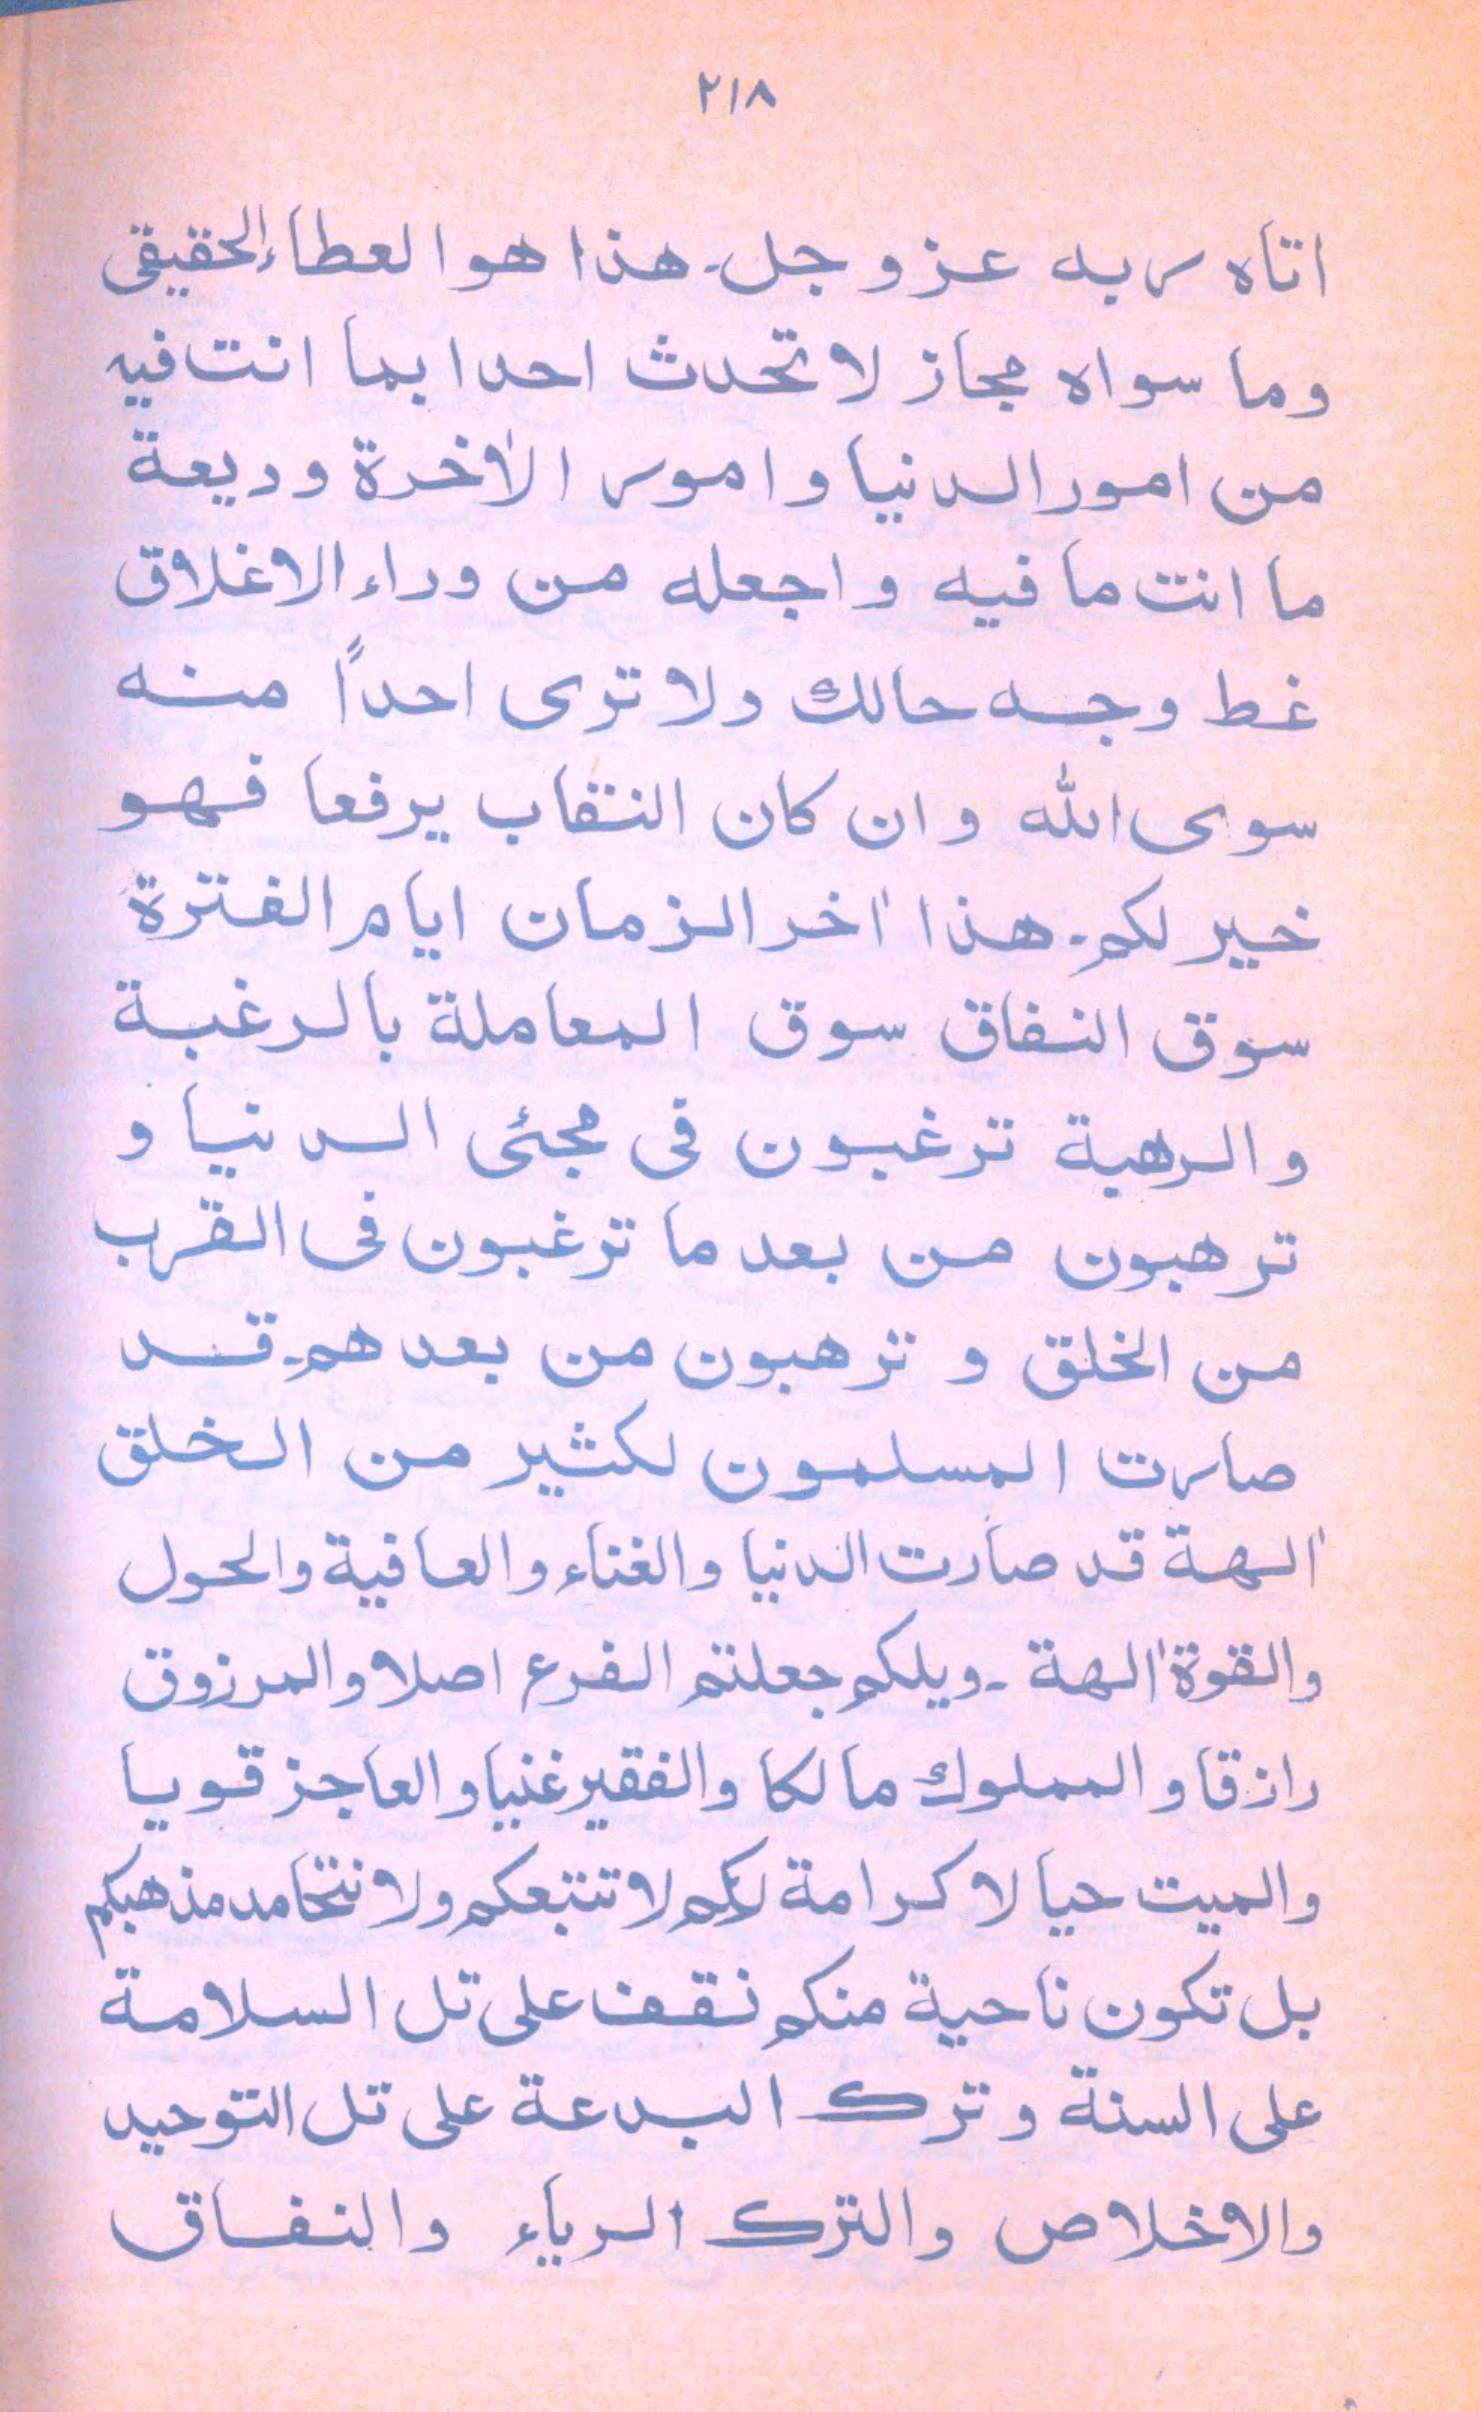 ٢١٨
اتاه ربه عز و جل۔ هذا هو العطاء الحقيقى
وما سواه مجاز لا تحدث احدا بما انت فيه
من امور الدنيا و امور الاٰخرة وديعة
ما انت ما فيه و اجعله من وراء الاغلاق
غط وجه حالك ولا ترى احداً منه
سوى الله و ان كان النقاب يرفعا فهو
خير لكم۔ هذا اٰخر الزمان ايام الفترة
سوق النفاق سوق المعاملة بالرغبة
والرهبة ترغبون فى مجئى الدنيا و
ترهبون من بعد ما ترغبون فى القرب
من الخلق و ترهبون من بعدهم۔ قد
صارت المسلمون لكثير من الخلق
اٰلهة قد صارت الدنيا والغناء والعافية والحول
والقوة اٰلهة ۔ ويلكم جعلتم الفرع اصلا والمرزوق
رازقا و المملوك مالكا والفقير غنيا و العاجز قويا
والميت حيا لا كرامة لكم لا تتبعكم ولا نتخامد مذهبكم
بل تكون ناحية منكم نقف على تل السلامة
على السنة و ترك البدعة على تل التوحيد
والاخلاص والترك الرياء والنفاق